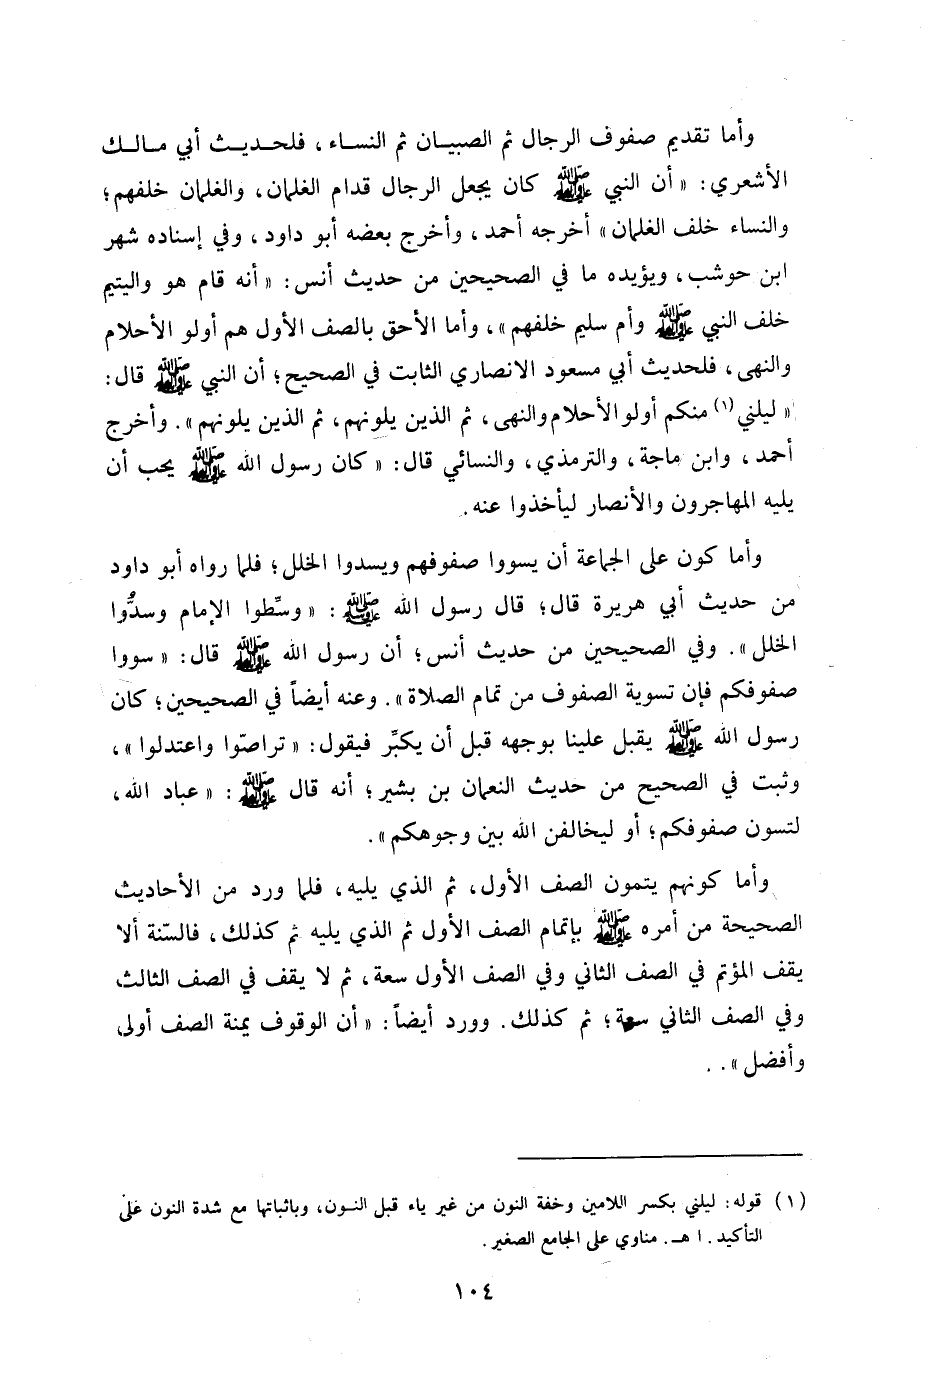 وأما تقديم صفوف الرجال ثم الصبيان ثم النساء ، فلحديث أبي مالك
الأشعري : « أن النبي ﷺ كان يجعل الرجال قدام الغلمان ، والغلمان خلفهم ؛
والنساء خلف الغلمان » أخرجه أحمد ، وأخرج بعضه أبو داود ، وفي إسناده شهر
ابن حوشب ، ويؤيده ما في الصحيحين من حديث أنس : « أنه قام هو واليتيم
خلف النبي ﷺ وأم سليم خلفهم » ، وأما الأحق بالصف الأول هم أولو الأحلام
والنهى ، فلحديث أبي مسعود الانصاري الثابت في الصحيح ؛ أن النبي ﷺ قال :
« ليلني (١) منكم أولو الأحلام والنهى ، ثم الذين يلونهم ، ثم الذين يلونهم » . وأخرج
أحمد ، وابن ماجة ، والترمذي ، والنسائي قال : « كان رسول الله ﷺ يحب أن
يليه المهاجرون والأنصار ليأخذوا عنه .
وأما كون على الجماعة أن يسووا صفوفهم ويسدوا الخلل ؛ فلما رواه أبو داود
من حديث أبي هريرة قال ؛ قال رسول الله ﷺ : « وسِّطوا الإمام وسدُّوا
الخلل » . وفي الصحيحين من حديث أنس ؛ أن رسول الله ﷺ قال : « سووا
صفوفكم فإن تسوية الصفوف من تمام الصلاة » . وعنه أيضاً في الصحيحين ؛ كان
رسول الله ﷺ يقبل علينا بوجهه قبل أن يكبِّر فيقول : « تراصّوا واعتدلوا » ،
وثبت في الصحيح من حديث النعمان بن بشير ؛ أنه قال ﷺ : « عباد الله ،
لتسون صفوفكم ؛ أو ليخالفن الله بين وجوهكم » .
وأما كونهم يتمون الصف الأول ، ثم الذي يليه ، فلما ورد من الأحاديث
الصحيحة من أمره ﷺ بإتمام الصف الأول ثم الذي يليه ثم كذلك ، فالسّنة ألا
يقف المؤتم في الصف الثاني وفي الصف الأول سعة ، ثم لا يقف في الصف الثالث
وفي الصف الثاني سعة ؛ ثم كذلك . وورد أيضاً : « أن الوقوف يمنة الصف أولى
وأفضل » . .
(١) قوله : ليلني بكسر اللامين وخفة النون من غير ياء قبل النون ، وباثباتها مع شدة النون على
التأكيد . ا هـ . مناوي على الجامع الصغير .
١٠٤